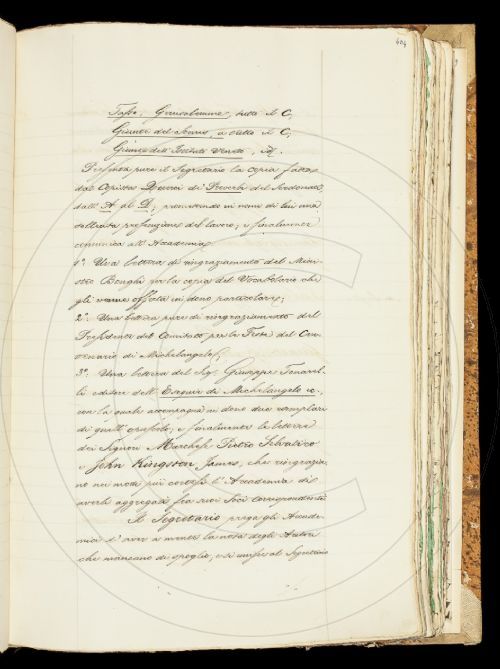 404
Tasso, Gerusalemme, tutto il C;
Giunte del Somis, a tutto il C;
Giunte dell'Istituto Veneto, Id.
Presenta pure il Segretario la copia fatta
dal Copista Decroi di Proverbi del Serdonati
dall'A al D, promettendo in nome di lui una
sollecita prosecuzione del lavoro; e finalmente
comunica all'Accademia
1.º Una lettera di ringraziamento del Mini-
stro Bonghi per la copia del Vocabolario che
gli venne offerta in dono particolare;
2.º Una lettera pure di ringraziamento del
Presidente del Comitato per le Feste del Cen-
tenario di Michelangelo;
3.º Una lettera del Sig. Giuseppe
editore dell'Esequie di Michelangelo ec.,
con la quale accompagna in dono due esemplari
di quell'opuscolo; e finalmente le lettere
dei Signori Marchese Pietro Selvatico
e John Kingston James, che ringrazia-
no nei modi più cortesi l'Accademia di
averli aggregati fra i suoi Soci corrispondenti
Il Segretario prega gli Accade-
mici d'aver a mente la nota degli Autori
che mancano di spoglio, e si unisce al Segretario